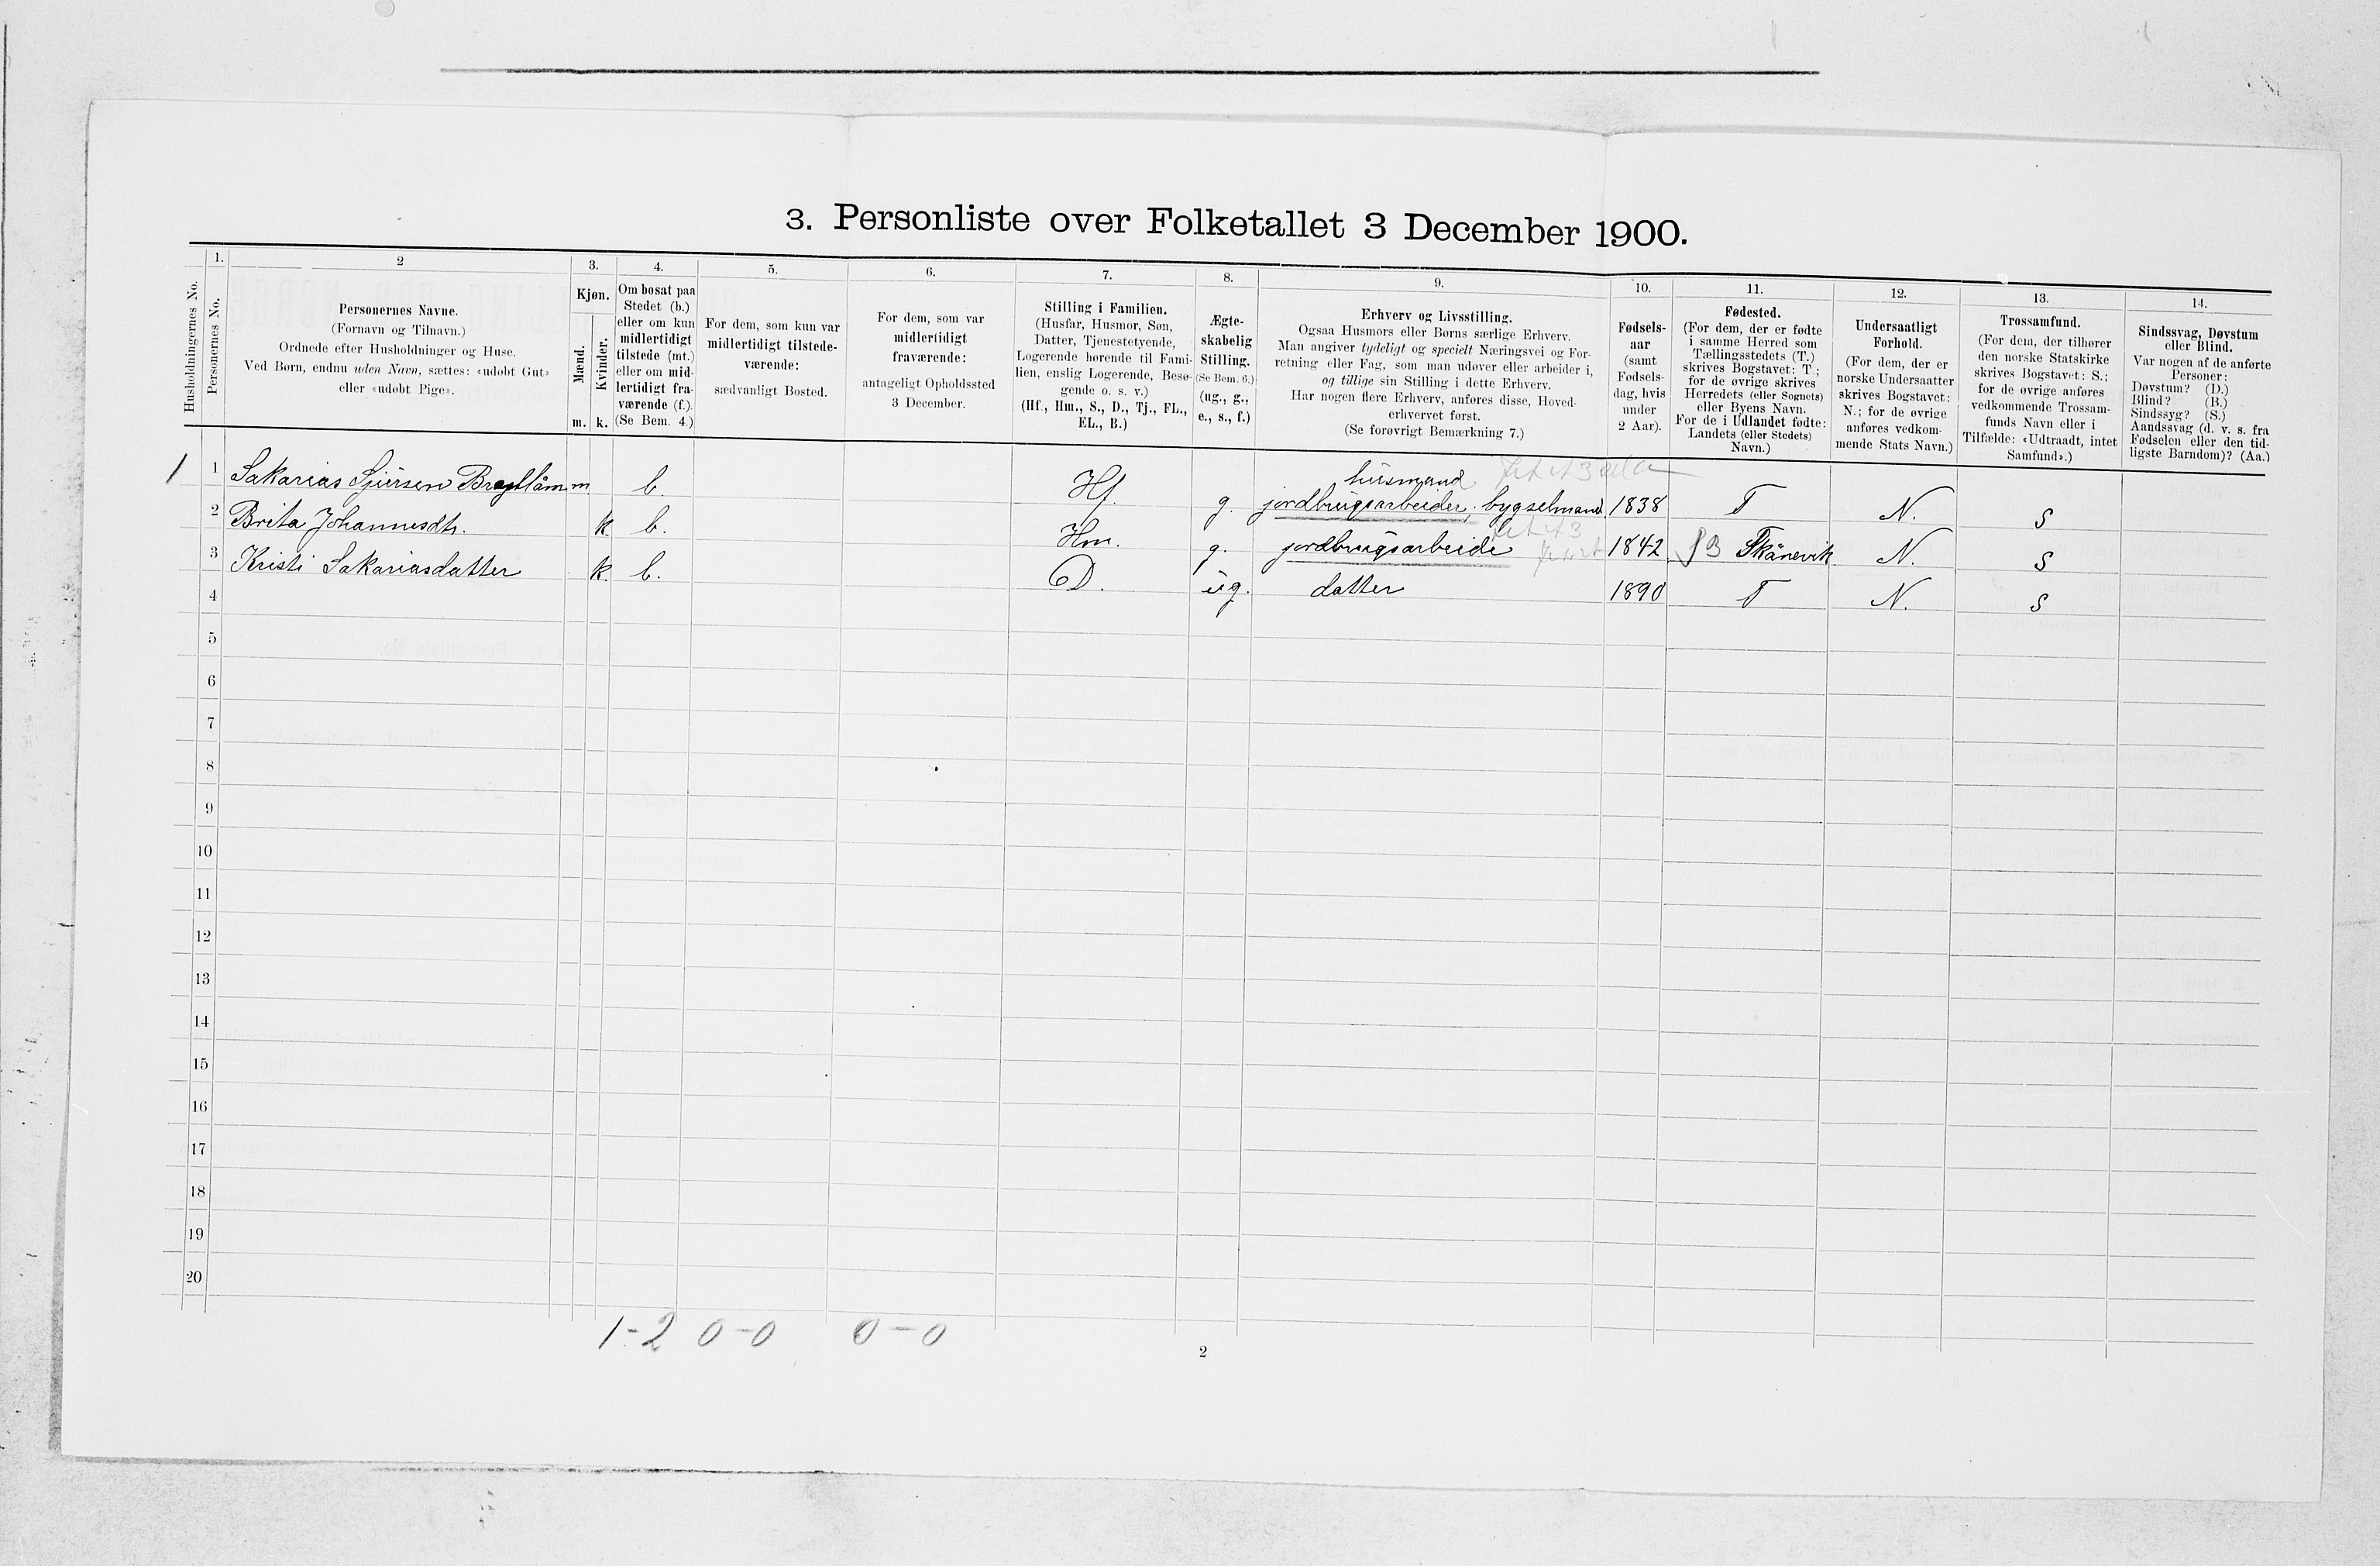 3. Personliste over Folketallet 3 December 1900.
Husholdningernes No.
1.
Personernes No.
2
Personernes Navne.
(Fornavn og Tilnavn.)
Ordnede efter Husholdninger og Huse.
Ved Børn, endnu uden Navn, sættes: «udøbt Gut»
eller «udøbt Pige».
3.
Kjøn.
Mænd.
Kvinder.
m. k.
4.
Om bosat paa
Stedet (b.)
eller om kun
midlertidigt
tilstede (mt.)
eller om mid-
lertidigt fra-
værende (f.).
(Se Bem. 4.)
5.
For dem, som kun var
midlertidigt tilstede-
værende:
sædvanligt Bosted.
6.
For dem, som var
midlertidigt
fraværende:
antageligt Opholdssted
3 December.
7.
Stilling i Familien.
(Husfar, Husmor, Søn,
Datter, Tjenestetyende,
Logerende hørende til Fami-
lien, enslig Logerende, Besø-
gende o. s. v.)
(Hf., Hm., S., D., Tj., FL.,
EL., B.)
8.
Ægte-
skabelig
Stilling.
(Se Bem. 6.)
(ug., g.,
e., s., f.)
9.
Erhverv og Livsstilling.
Ogsaa Husmors eller Børns særlige Erhverv.
Man angiver tydeligt og specielt Næringsvei og For-
retning eller Fag, som man udøver eller arbeider i,
og tillige sin Stilling i dette Erhverv.
Har nogen flere Erhverv, anføres disse, Hoved-
erhvervet først.
(Se forøvrigt Bemærkning 7.)
10.
Fødsels-
aar
(samt
Fødsels-
dag, hvis
under
2 Aar).
11.
Fødested.
(For dem, der er fødte
i samme Herred som
Tællingsstedets (T.)
skrives Bogstavet: T.;
for de øvrige skrives
Herredets (eller Sognets)
eller Byens Navn.
For de i Udlandet fødte:
Landets (eller Stedets)
Navn.)
12.
Undersaatligt
Forhold.
(For dem, der er
norske Undersaatter
skrives Bogstavet:
N.; for de øvrige
anføres vedkom-
mende Stats Navn.)
13.
Trossamfund.
(For dem, der tilhører
den norske Statskirke
skrives Bogstavet: S.;
for de øvrige anføres
vedkommende Trossam-
funds Navn eller i
Tilfælde: «Udtraadt, intet
Samfund».)
14.
Sindssvag, Døvstum
eller Blind.
Var nogen af de anførte
Personer:
Døvstum? (D.)
Blind? (B.)
Sindssyg? (S.)
Aandssvag (d. v. s. fra
Fødselen eller den tid-
ligste Barndom)? (Aa.)
husmand
1 1 Sakarias Sjursen m b. Hf. g. jordbrugsarbeider, bygselmand. 1838 T N. S
2 Brita Johannesdtr. k b. Hm. g. jordbrugsarbeide 1842 Skånevik N. S
3 Kristi Sakariasdatter k. b. D. ug. datter 1890 T N. S
4
5
6
7
8
9
10
11
12
13
14
15
16
17
18
19
20
1-2 0-0 0-0
2